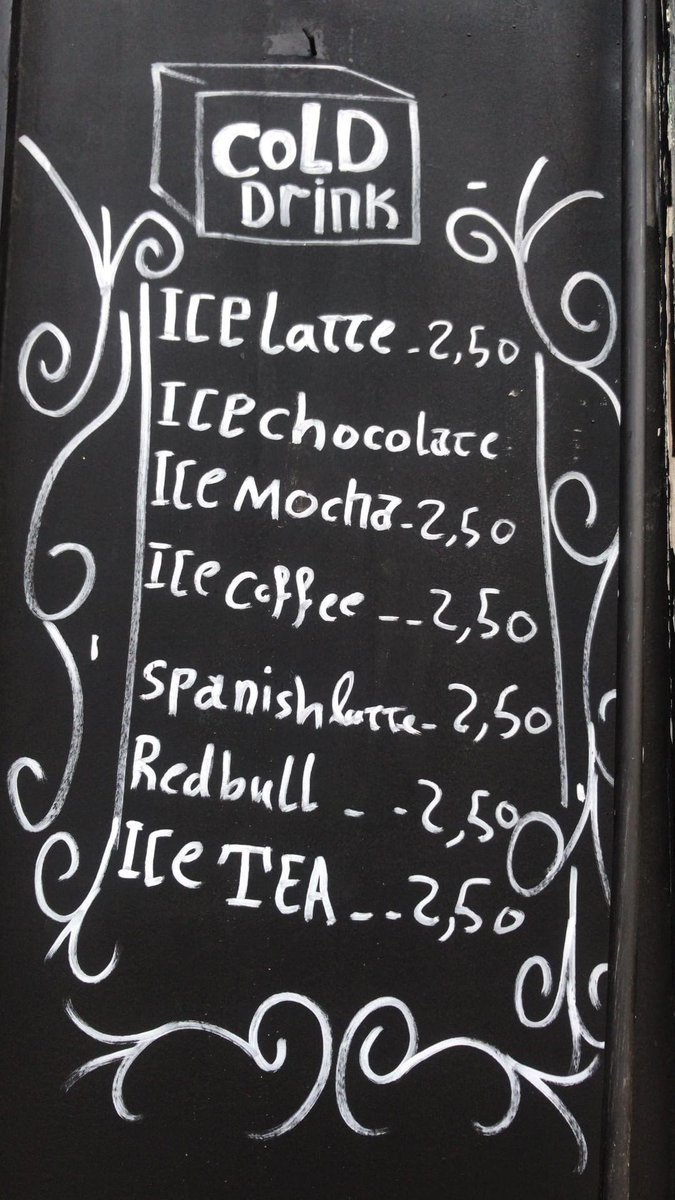 COLD
Drink
Ice latte - 2,50
Ice chocolate
Ice Mocha - 2,50
Ice coffee -- 2,50
spanish latte - 2,50
Redbull - - 2,50
Ice TEA -- 2,50